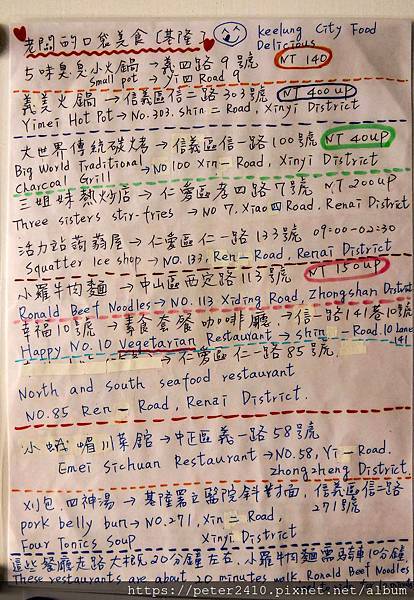 老闆的口袋美食〔基隆〕 Keelung City Food
Delicious
5味臭臭小火鍋 → 義四路9號 NT 140
Small pot → Yi 四 Road 9
義美火鍋 → 信義區信二路303號 NT 400 up
Yimei Hot Pot → No. 303, shin 二 Road, Xinyi District
大世界傳統碳烤 → 信義區信一路100號 NT 40up
Big World Traditional → NO 100 Xin 一 Road, Xinyi District
Charcoal Grill
三姐妹熱炒店 → 仁愛區孝四路7號 NT 200 up
Three sisters stir-fries → NO 7, Xiao 四 Road, Renai District
活力站蒟蒻屋 → 仁愛區仁一路133號 09:00-02:30
Squatter Ice shop → NO.133, Ren 一 Road, Renai District
小羅牛肉麵 → 中山區西定路113號 NT 150 up
Ronald Beef Noodles → NO. 113 Xiding Road, Zhongshan District
幸福10號 → 素食套餐咖啡廳, → 信一路141巷10號
Happy No. 10 Vegetarian Restaurant → shin 一 Road, 10 Lane
141
→ 仁愛區仁一路85號,
North and south seafood restaurant
NO.85 Ren 一 Road, Renai District.
小峨嵋川菜館 → 中正區義一路58號
Emei Sichuan Restaurant → NO.58, Yi 一 Road,
zhongzheng District,
刈包,四神湯 → 基隆署立醫院斜對面, 信義區信二路
271號
pork belly bun → NO.271, Xin 二 Road,
Four Tonics Soup Xinyi District
這些餐廳走路大概20分鐘左右,小羅牛肉麵需騎車10分鐘
These restaurants are about 20 minutes walk, Ronald Beef Noodles
https://peter2410.pixnet.net/album